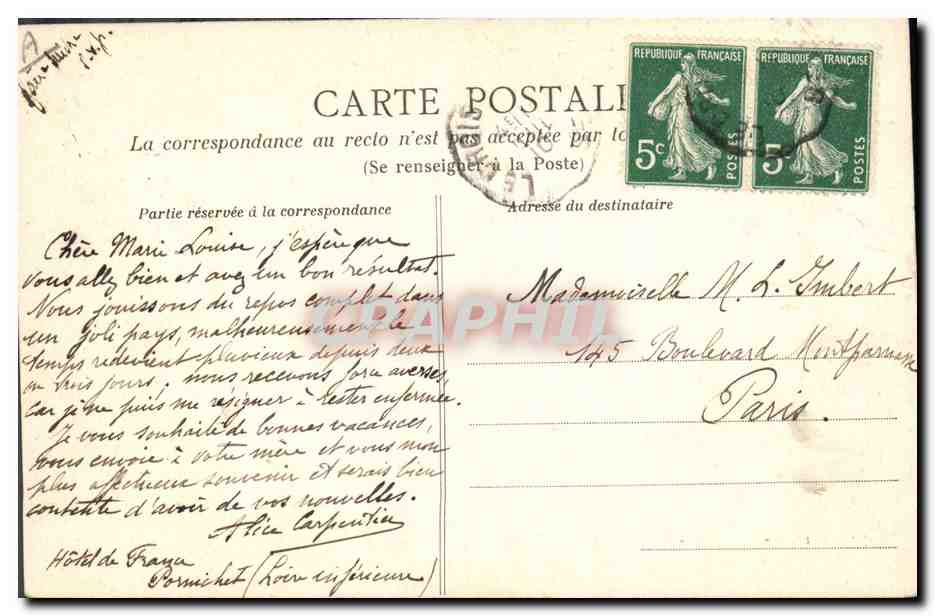 RÉPUBLIQUE FRANÇAISE
RÉPUBLIQUE FRANÇAISE
5c
POSTES
5c
POSTES
CARTE POSTALE
La correspondance au recto n'est pas acceptée par
(Se renseigner à la Poste)
Partie réservée à la correspondance
Chère Marie Louise, j'espère que
vous allez bien et avez un bon résultat.
Nous jouissons du repos complet dans
un joli pays, malheureusement le
temps redevient pluvieux depuis deux
ou trois jours, nous recevons force averses,
car je ne puis me résigner à rester enfermée.
Je vous souhaite de bonnes vacances,
vous envoie à votre mère et vous mon
plus affectueux souvenir et serais bien
contente d'avoir de vos nouvelles.
Alice Carpentier
Hôtel de France
Pornichet (Loire inférieure)
Adresse du destinataire
Mademoiselle M. L. Imbert
145 Boulevard Montparnasse
Paris.
CPAPHIL